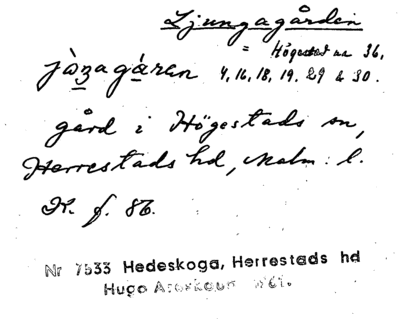 Ljungagården
= Högestad nr 36,
jùŋagá̱ran 4, 16, 18, 19, 29 & 30.
gård i Högestads sn,
Herrestads hd, Malm. l.
K. f. 86.
Nr 7533 Hedeskoga, Herrestads hd
Hugo